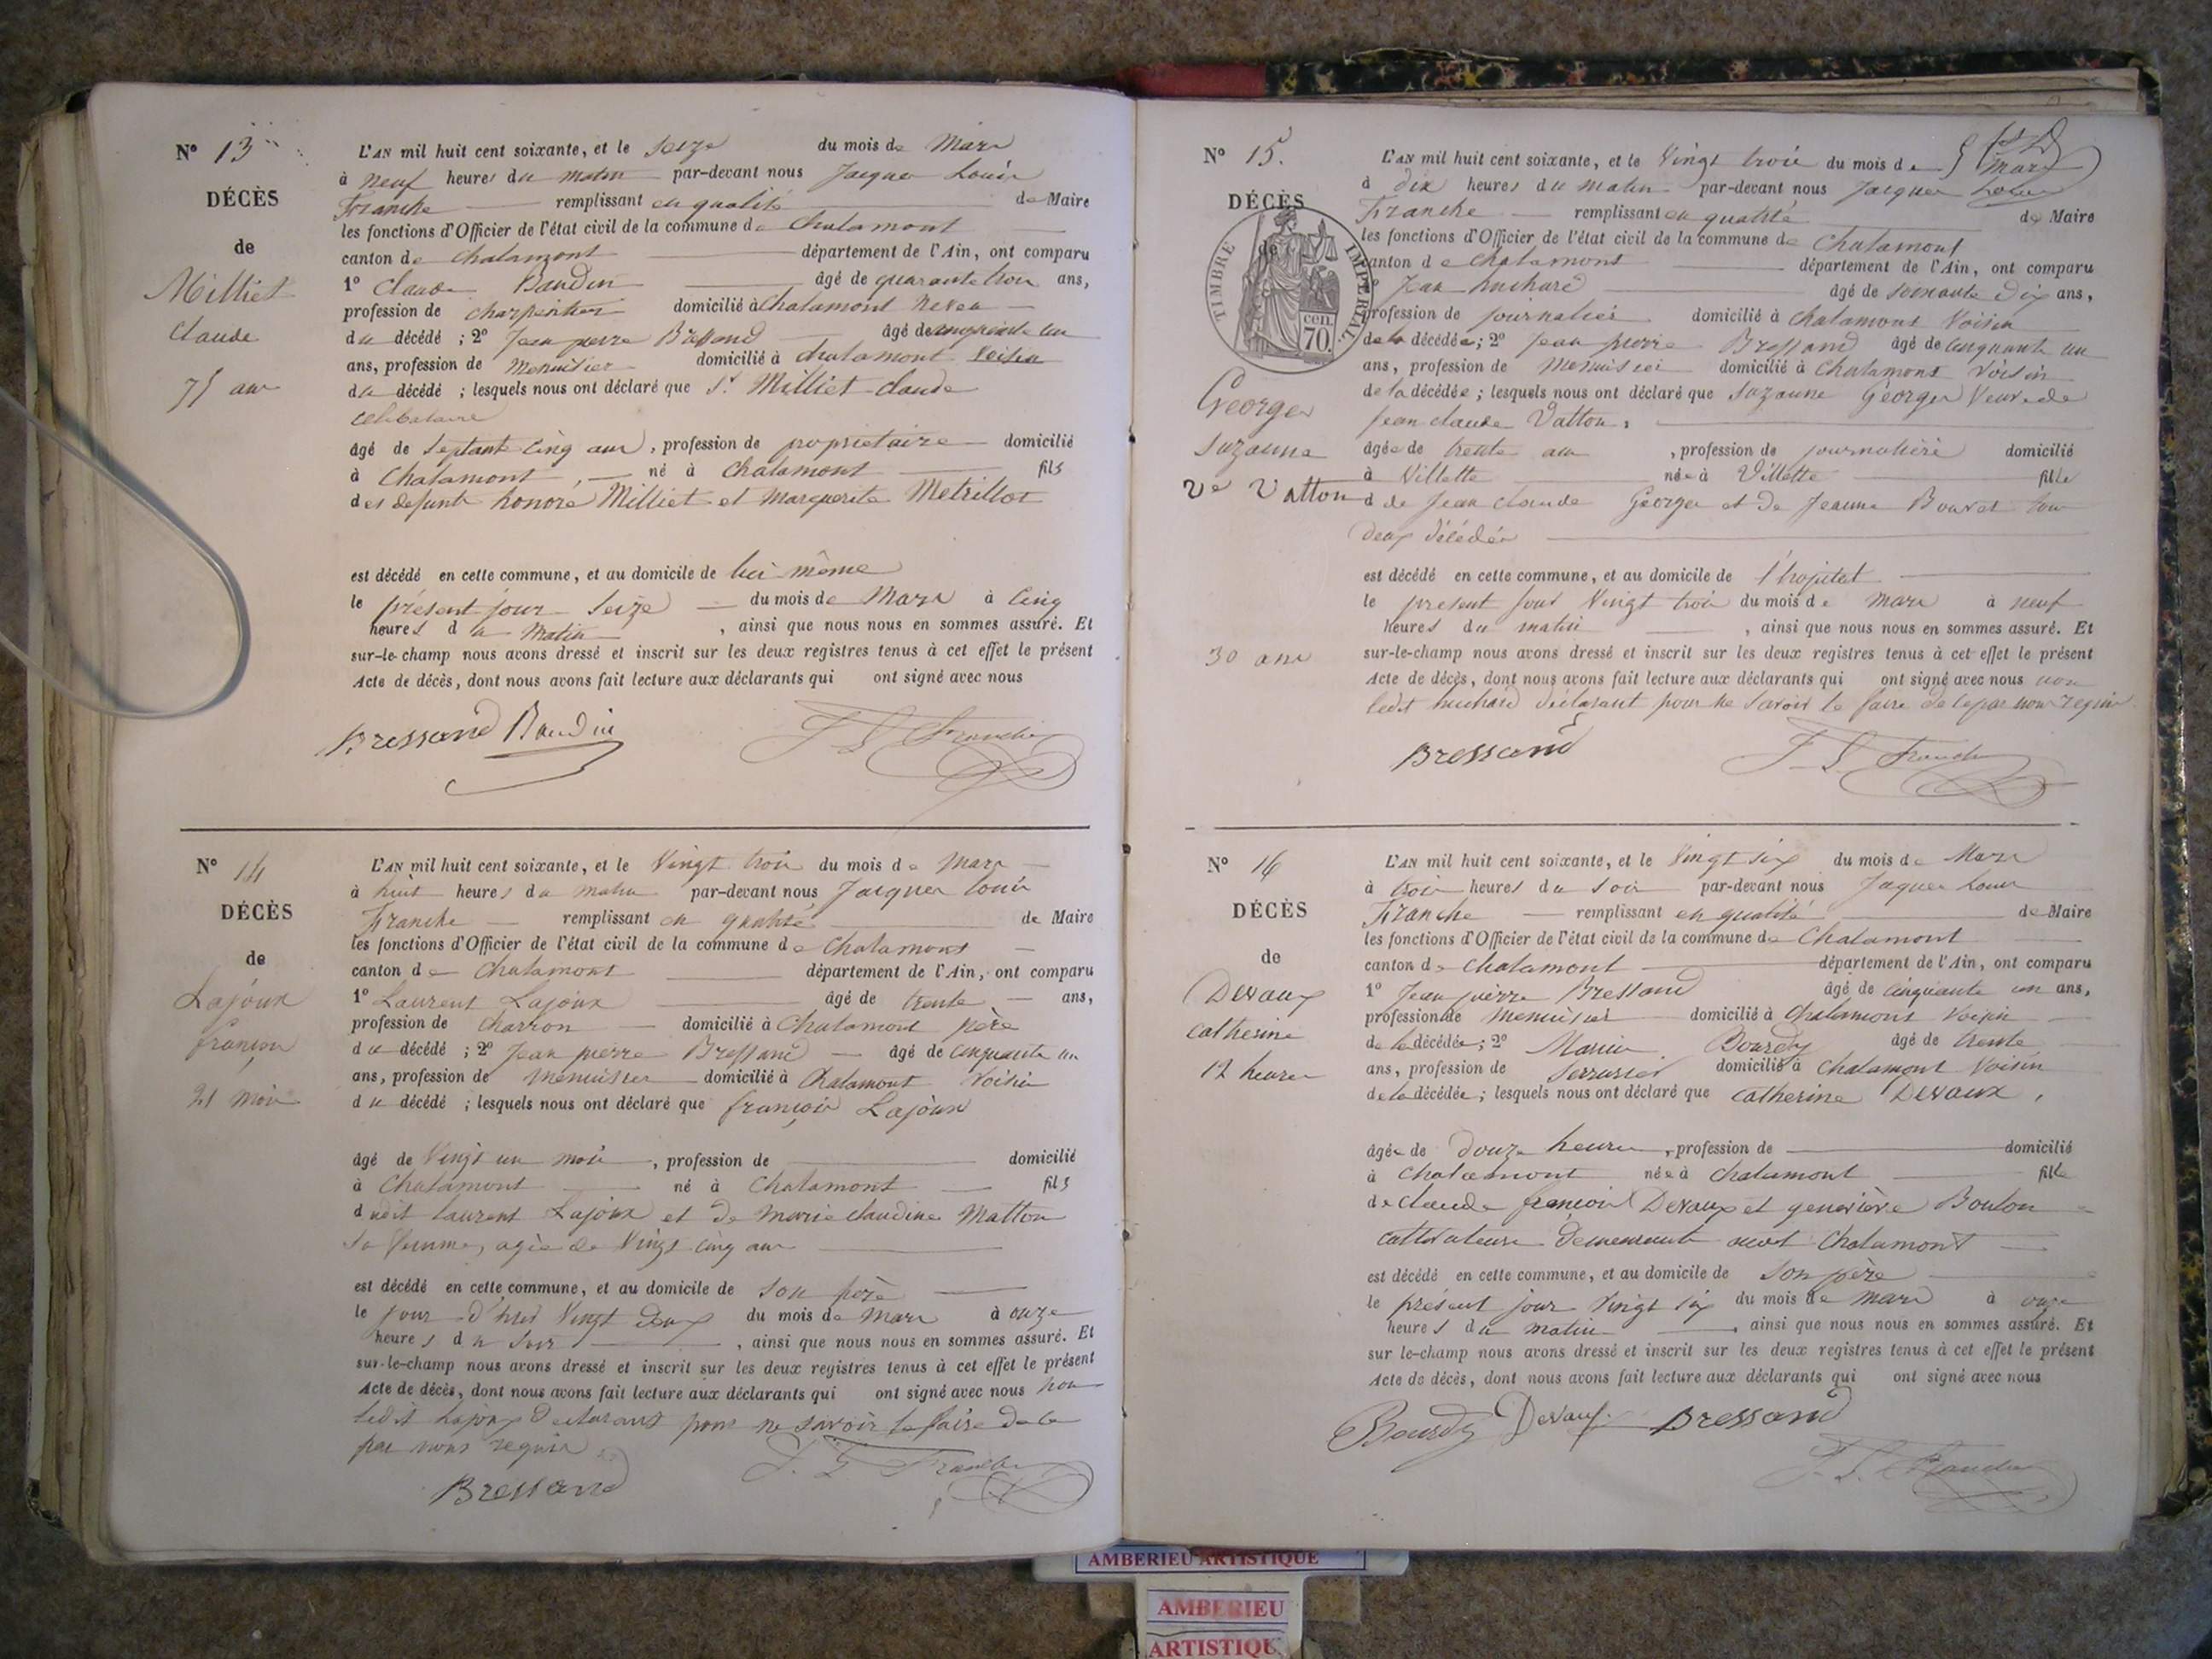 N° 13
DÉCÈS
de
Milliet
Claude
75 ans
L'AN mil huit cent soixante, et le seize du mois de Mars
à neuf heures du matin par-devant nous Jacques Louis
Franche remplissant en qualité de Maire
les fonctions d'Officier de l'état civil de la commune de Chalamont
canton de Chalamont département de l'Ain, ont comparu
1° Claude Baudin âgé de quarante trois ans,
profession de charpentier domicilié à Chalamont neveu
du décédé ; 2° Jean pierre Bressand âgé de cinquante un
ans, profession de Menuisier domicilié à Chalamont Voisin
du décédé ; lesquels nous ont déclaré que Sr Milliet Claude
celibataire
âgé de septante cinq ans, profession de propriétaire domicilié
à Chalamont, né à Chalamont fils
des defunts honoré Milliet et Marguerite Metrillot
est décédé en cette commune, et au domicile de lui même
le présent jour seize du mois de Mars à cinq
heures du matin, ainsi que nous nous en sommes assuré. Et
sur-le-champ nous avons dressé et inscrit sur les deux registres tenus à cet effet le présent
Acte de décès, dont nous avons fait lecture aux déclarants qui ont signé avec nous
Bressand Baudin J L Franche
N° 14
DÉCÈS
de
Lajoux
françois
21 mois
L'AN mil huit cent soixante, et le Vingt trois du mois de Mars
à huit heures du matin par-devant nous Jacques Louis
Franche remplissant en qualité de Maire
les fonctions d'Officier de l'état civil de la commune de Chalamont
canton de Chalamont département de l'Ain, ont comparu
1° Laurent Lajoux âgé de trente ans,
profession de charron domicilié à Chalamont père
du décédé ; 2° Jean pierre Bressand âgé de cinquante un
ans, profession de menuisier domicilié à Chalamont Voisin
du décédé ; lesquels nous ont déclaré que françois Lajoux
âgé de Vingt un mois, profession de domicilié
à Chalamont né à Chalamont fils
dudit laurent Lajoux et de marie claudine Matton
sa femme, agée de Vingt cinq ans
est décédé en cette commune, et au domicile de son père
le jour d'hier Vingt deux du mois de Mars à onze
heures du soir, ainsi que nous nous en sommes assuré. Et
sur-le-champ nous avons dressé et inscrit sur les deux registres tenus à cet effet le présent
Acte de décès, dont nous avons fait lecture aux déclarants qui ont signé avec nous non
ledit Lajoux declarant pour ne savoir le faire de ce
par nous requis
Bressand J. L Franche
N° 15.
DÉCÈS
de
TIMBRE IMPÉRIAL
70 cen.
Georges
Suzanne
Ve Vatton
30 ans
L'AN mil huit cent soixante, et le Vingt trois du mois de Mars
à dix heures du matin par-devant nous Jacques Louis
Franche remplissant en qualité de Maire
les fonctions d'Officier de l'état civil de la commune de Chalamont
canton de Chalamont département de l'Ain, ont comparu
1° Jean huchard âgé de soixante dix ans,
profession de journalier domicilié à Chalamont Voisin
de la décédée ; 2° Jean pierre Bressand âgé de cinquante un
ans, profession de Menuisier domicilié à Chalamont Voisin
de la décédée ; lesquels nous ont déclaré que Suzanne Georges Veuve de
Jean claude Vatton,
âgée de trente ans, profession de journalière domicilié
à Villette née à Villette fille
d de Jean claude Georges et de Jeanne Bouvet tous
deux décédés
est décédé en cette commune, et au domicile de l'hopital
le present jour Vingt trois du mois de mars à neuf
heures du matin, ainsi que nous nous en sommes assuré. Et
sur-le-champ nous avons dressé et inscrit sur les deux registres tenus à cet effet le présent
Acte de décès, dont nous avons fait lecture aux déclarants qui ont signé avec nous non
ledit huchard déclarant pour ne savoir le faire de ce par nous requis
Bressand J L Franche
N° 16
DÉCÈS
de
Devaux
Catherine
12 heures
L'AN mil huit cent soixante, et le Vingt six du mois de Mars
à trois heures du soir par-devant nous Jaques Louis
Franche remplissant en qualité de Maire
les fonctions d'Officier de l'état civil de la commune de Chalamont
canton de Chalamont département de l'Ain, ont comparu
1° Jean pierre Bressand âgé de cinquante un ans,
profession de Menuisier domicilié à Chalamont Voisin
de la décédée ; 2° Marin Bourdy âgé de trente
ans, profession de Serrurier domicilié à Chalamont Voisin
de la décédée ; lesquels nous ont déclaré que Catherine Devaux,
âgée de douze heures, profession de domicilié
à Chalamont née à Chalamont fille
de claude françois Devaux et geneviève Boulon
cultivateurs demeurants audit Chalamont
est décédé en cette commune, et au domicile de son père
le présent jour Vingt six du mois de mars à onze
heures du matin, ainsi que nous nous en sommes assuré. Et
sur le-champ nous avons dressé et inscrit sur les deux registres tenus à cet effet le présent
Acte de décès, dont nous avons fait lecture aux déclarants qui ont signé avec nous
Bourdy Devaux Bressand
J. L. Franche
AMBERIEU ARTISTIQUE
AMBERIEU
ARTISTIQUE